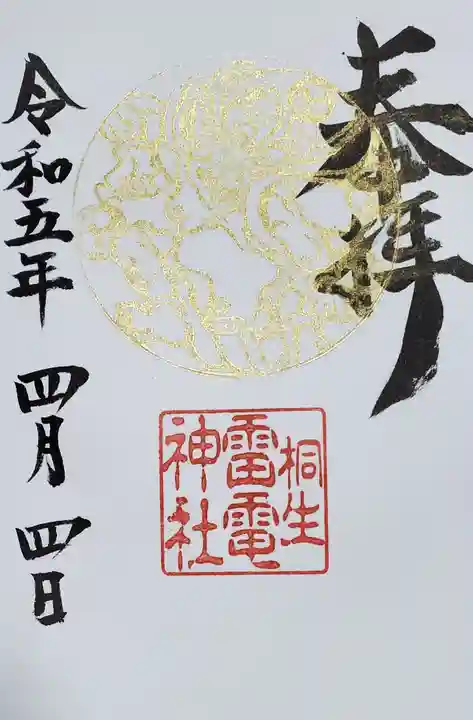 奉拝
桐生
雷電
神社
令和五年 四月 四日